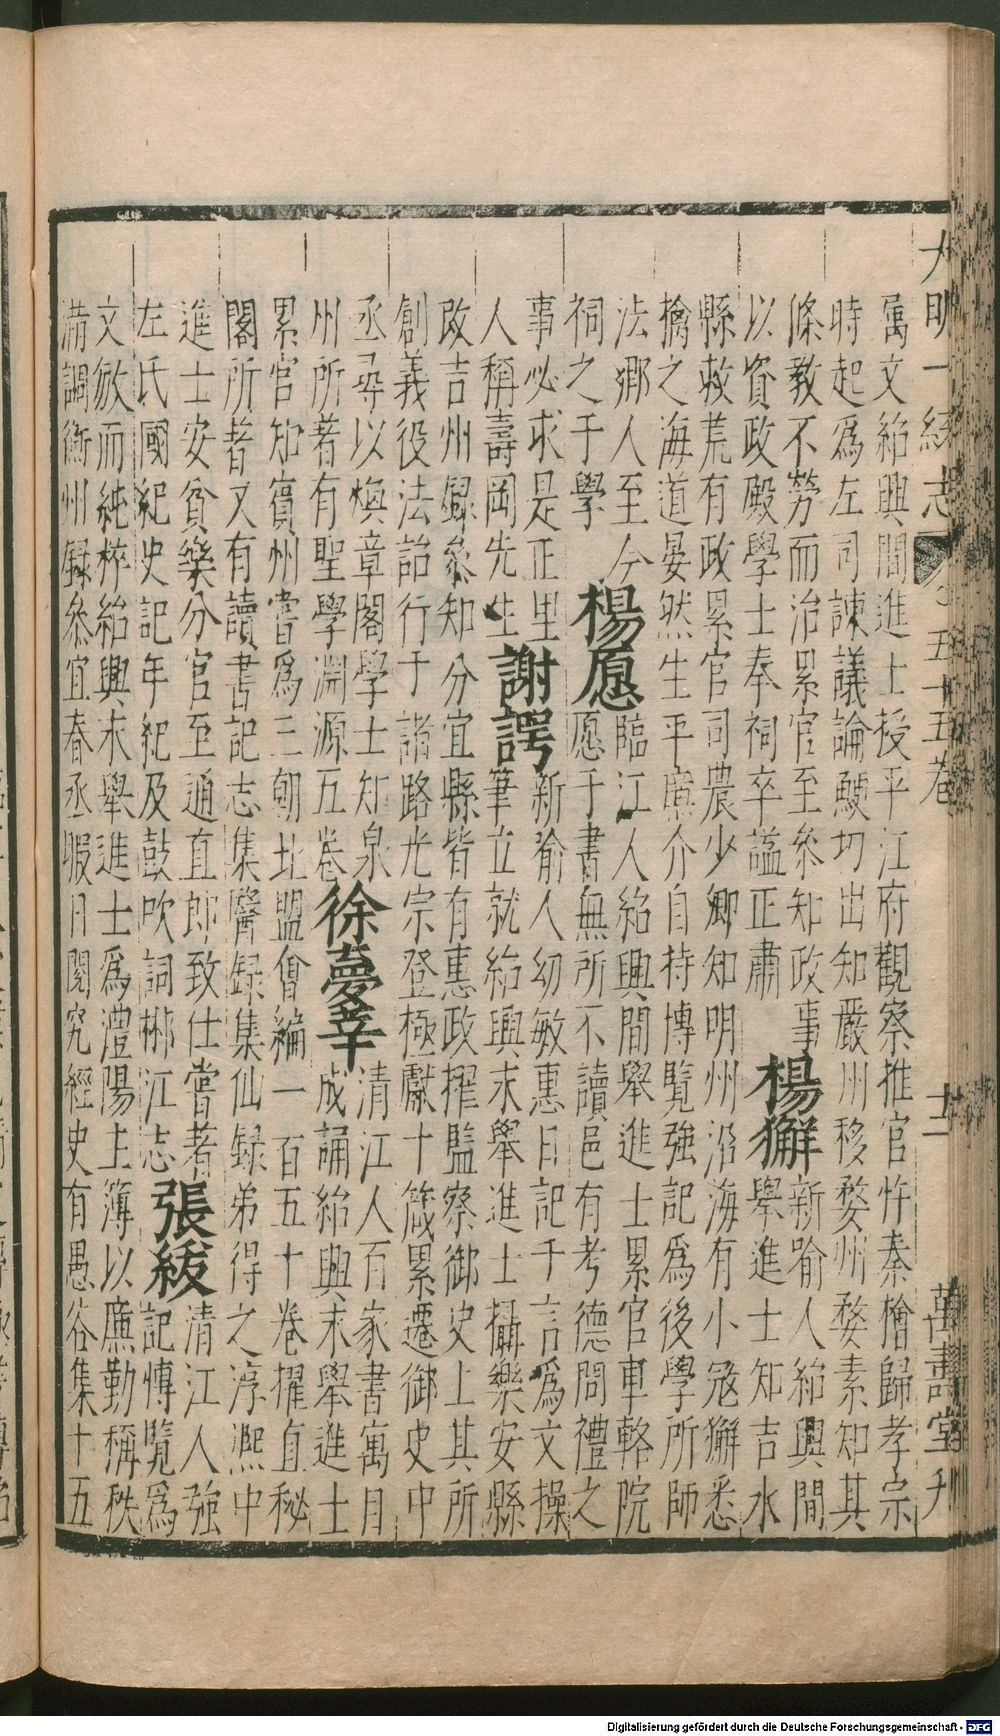 大明一統志 五十五卷 十二 萬壽堂刋
属文紹興間進士授平江府觀察推官忤秦檜歸孝宗
時起爲左司諫議論鯁切出知嚴州移婺州婺素知其
條敎不勞而治累官至叅知政事
以資政殿學士奉祠卒謚正肅
楊獬
新喻人紹興間
舉進士知吉水
縣救荒有政累官司農少卿知明州沿海有小冦獬悉
擒之海道晏然生平廉介自持博覽強記爲後學所師
法鄉人至今
祠之于學
楊愿
臨江人紹興間舉進士累官車輅院
愿于書無所不讀邑有考德問禮之
事必求是正里
人稱壽岡先生
謝諤
新喻人幼敏惠日記千言爲文操
筆立就紹興末舉進士攝樂安縣
改吉州錄叅知分宜縣皆有惠政擢監察御史上其所
創義役法詔行于諸路光宗登極獻十箴累遷御史中
丞尋以煥章閣學士知泉
州所著有聖學淵源五卷
徐夢莘
清江人百家書寓目
成誦紹興末舉進士
累官知賓州嘗爲三朝北盟會編一百五十卷擢直秘
閣所著又有讀書記志集醫錄集仙錄弟得之淳熈中
進士安貧樂分官至通直郎致仕嘗著
左氏國紀史記年紀及鼓吹詞郴江志
張綬
清江人強
記慱覽爲
文敏而純粹紹興末舉進士爲澧陽主簿以廉勤稱秩
滿調衡州錄叅宜春丞暇日閱究經史有愚谷集十五
Digitalisierung gefördert durch die Deutsche Forschungsgemeinschaft - DFG